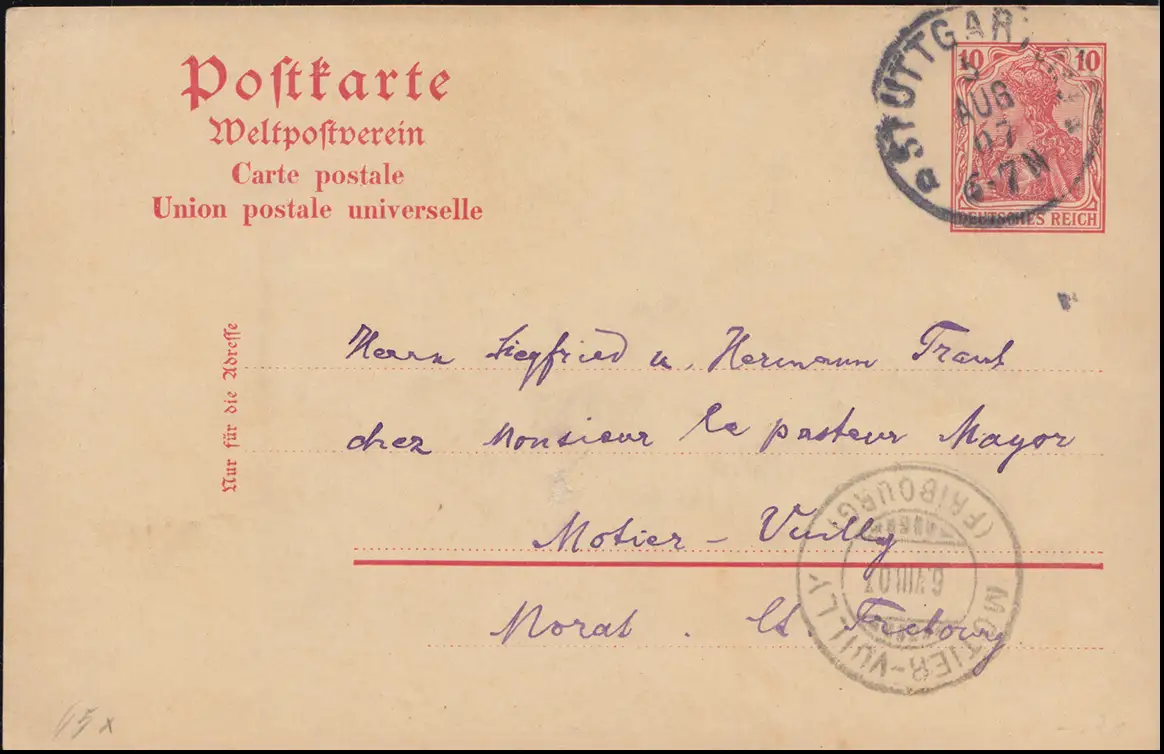 Postkarte
Weltpostverein
Carte postale
Union postale universelle
STUTTGART
5
AUG
07
6-7 N
10 10
DEUTSCHES REICH
Nur für die Adresse
Herrn Siegfried u. Hermann Traut
chez Monsieur le pasteur Mayor
Motier – Vuilly
Morat . Ct. Fribourg
MOTIER-VUILLY
(FRIBOURG)
6.VIII.07
65x